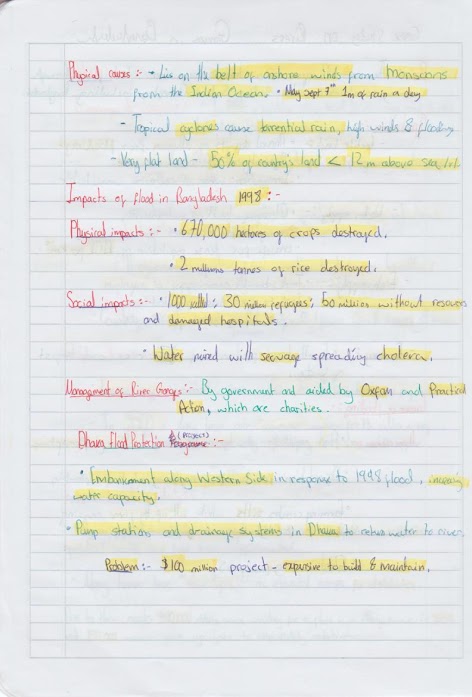 Physical causes :- → Lies on the belt of onshore winds from Monsoons
from the Indian Ocean. • May Sept 7th 1m of rain a day
- Tropical cyclones cause torrential rain, high winds & flooding
- Very flat land - 50% of country's land < 12m above sea lvl.
Impacts of flood in Bangladesh 1998 :-
Physical impacts :- • 670,000 hectares of crops destroyed.
• 2 millions tonnes of rice destroyed.
Social impacts :- • 1000 killed ; 30 million refugees; 60 million without resources
and damaged hospitals.
• Water mixed with sewage spreading cholera.
Management of River Ganges :- By government and aided by Oxfam and Practical
Action, which are charities.
Dhaka Flood Protection (PROJECT) :-
• Embankment along Western Side in response to 1998 flood, increasing
water capacity.
• Pump stations and drainage systems in Dhaka to return water to river.
Problem :- $100 million project - expensive to build & maintain.